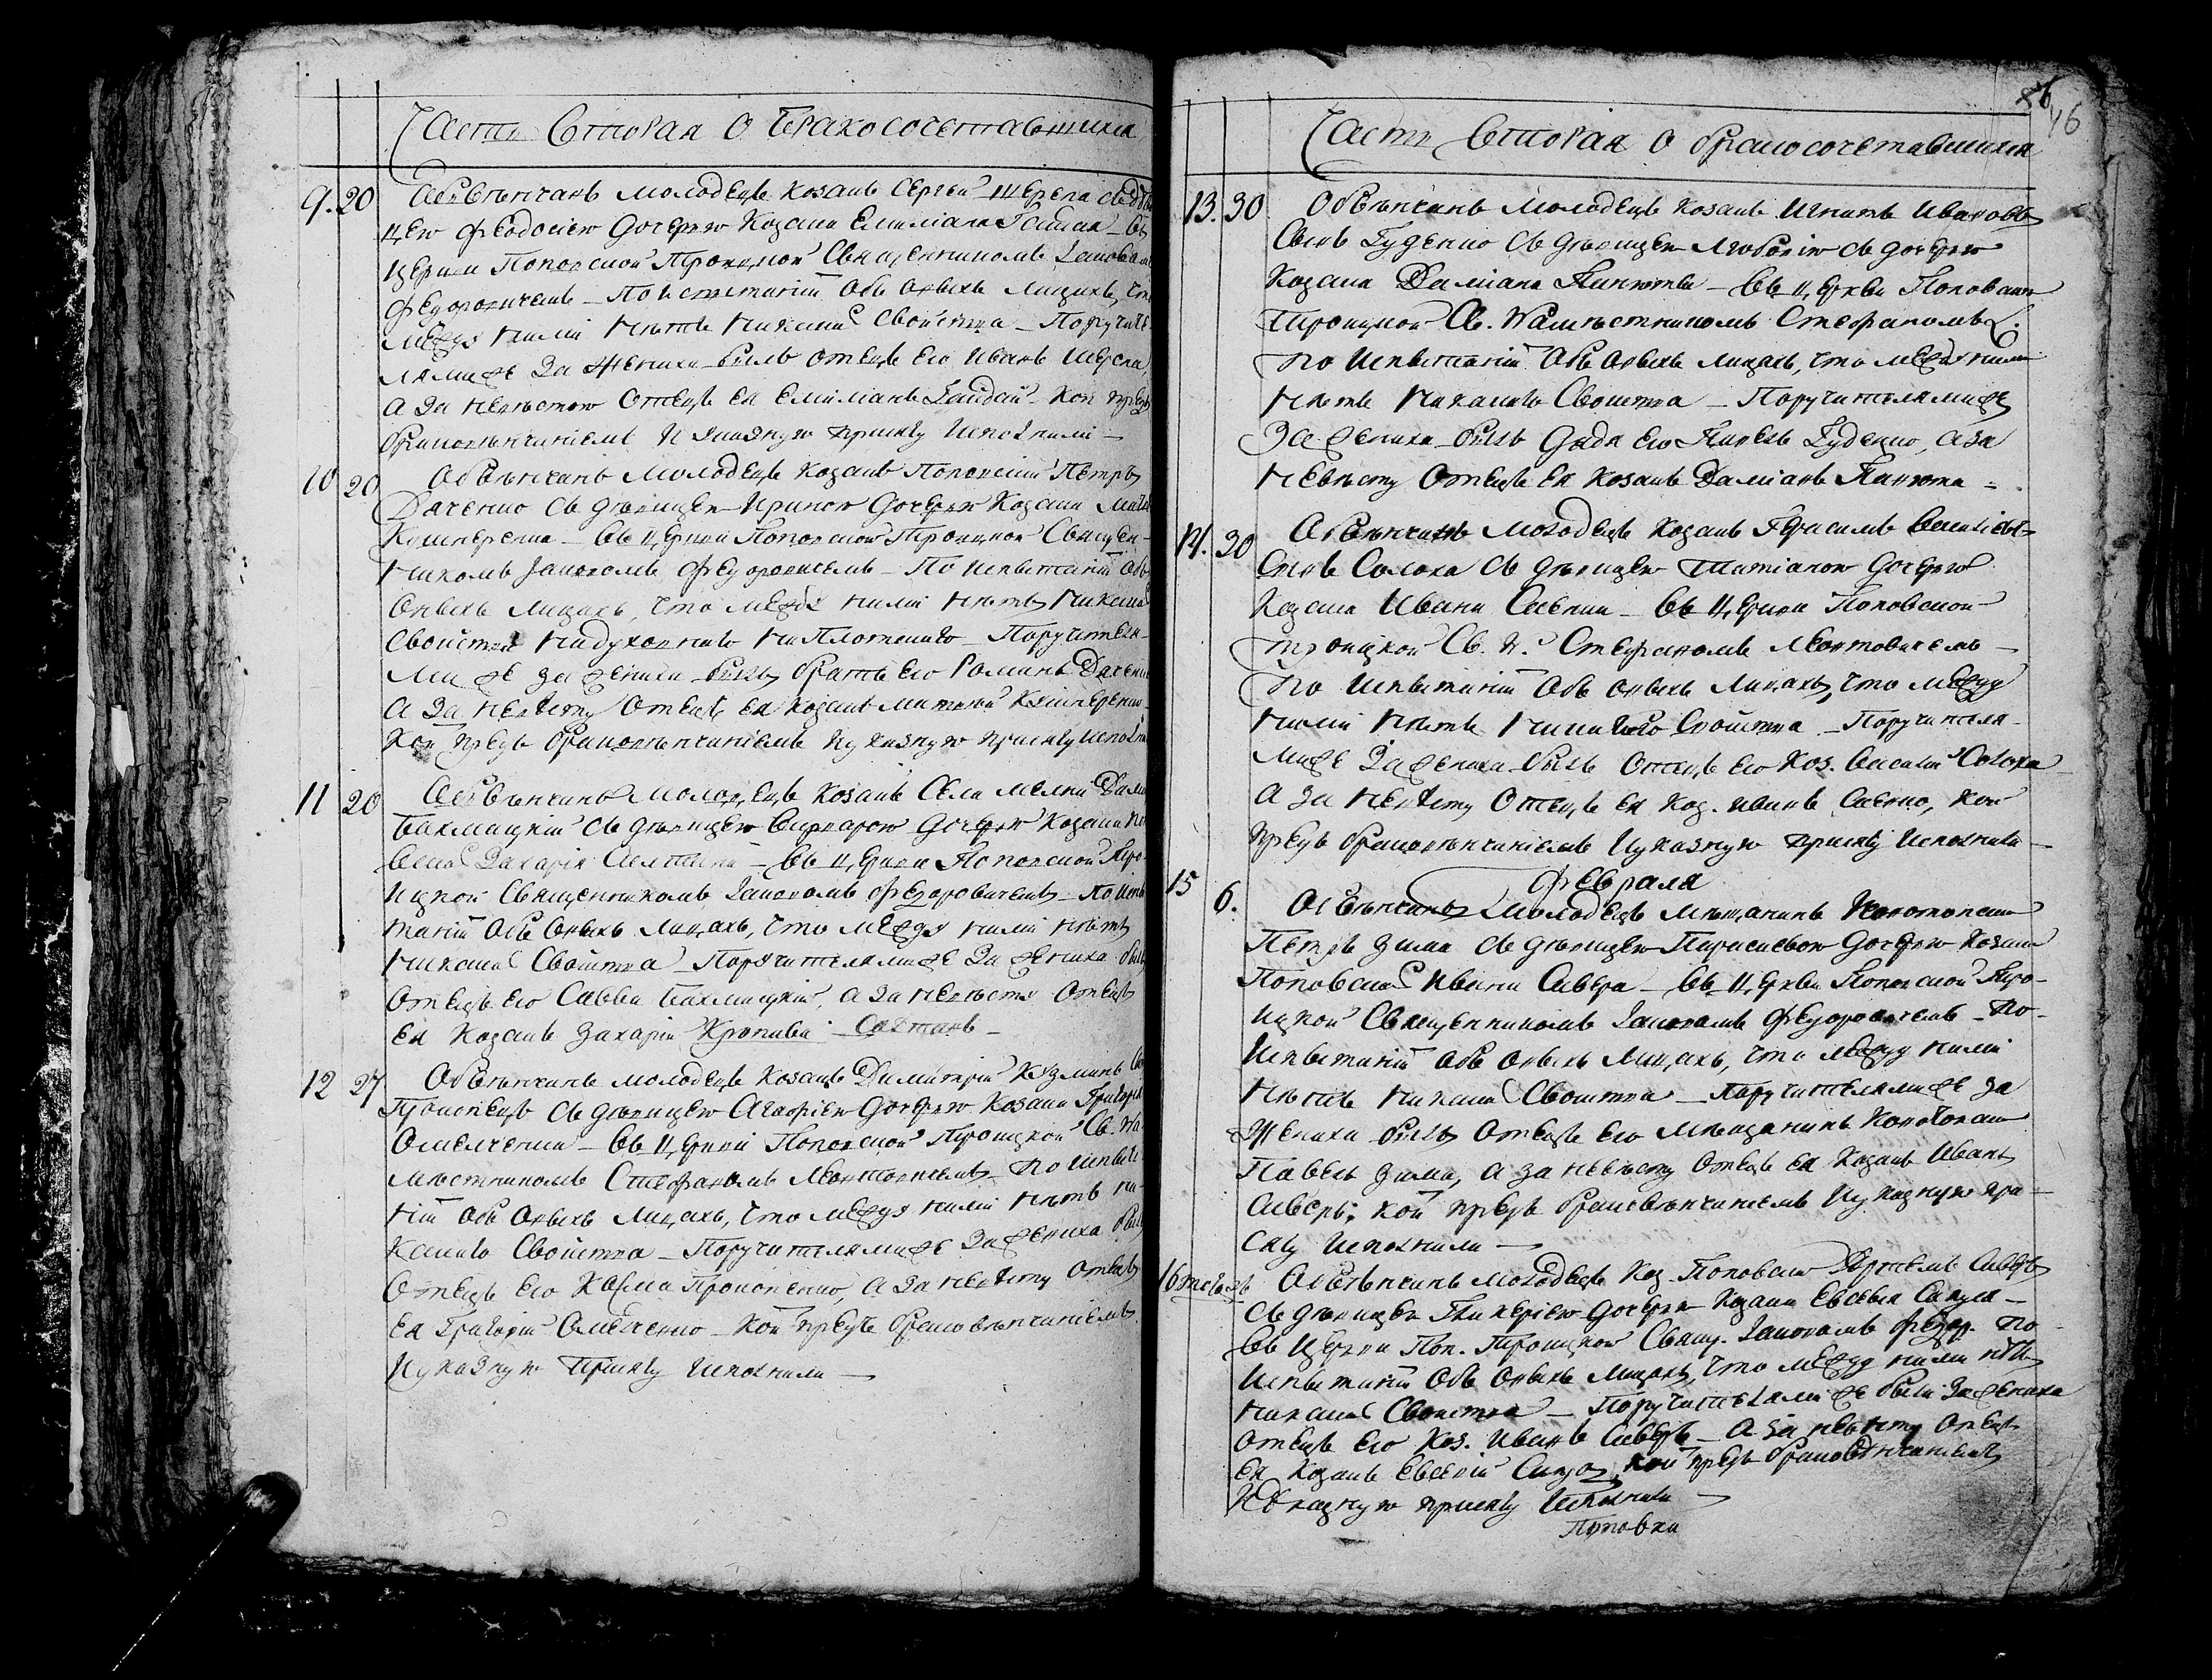 Часть Вторая О Бракосочетавшихся
9. 20 Обвѣнчанъ молодецъ козакъ Сергей Щерепа съ дѣви
цею Феодосіею дочерю Козака Емиліана Гайдая – въ
церкви Поповской Троицкой Священникомъ Іаковомъ
Федоровичемъ – По испытаніи объ оныхъ лицахъ, что
между ними нѣтъ никакого свойства – Поручите
лямиже за жениха былъ отецъ его Иванъ Щерепа
а за невѣстою Отецъ ея Емиліанъ Гайдай – кои предъ
браковѣнчаніемъ и указную присягу исполнили –
10 20 Обвѣнчанъ молодецъ козакъ Поповский Петръ
Даченко съ дѣвицею Ириною дочерю Козака
Кушнеренка – въ церкви Поповской Троицкой Священ-
никомъ Іаковомъ Федоровичемъ – По испытаніи объ
оныхъ лицахъ, что между ними нѣтъ никакого
свойства ни духовнаго ни плотскаго – Поручителя-
миже за жениха былъ братъ его Романъ Даченко
а за невѣсту Отецъ ея козакъ Кушнеренко
кои предъ браковѣнчаніемъ и указную присягу исполни
11 20 Обвѣнчанъ молодецъ козакъ Села
Бахмацкій съ дѣвицею Варварою дочерю козака По
вской Захарія – въ церкви Поповской Тро-
ицкой Священникомъ Іаковомъ Федоровичемъ – По испы
таніи объ оныхъ лицахъ, что между ними нѣтъ
никакого свойства – Поручителямиже за жениха былъ
Отецъ его Савва Бахмацкій, а за невѣсту Отецъ
ея Козакъ Захарій Кропива –
12 27 Обвѣнчанъ молодецъ козакъ Димитрій Козминъ
Прокопецъ съ дѣвицею Агафіею дочерю козака Григорія
Омелченка – въ церкви Поповской Троицкой Св. На
мѣстникомъ Стефаномъ Леонтовичемъ – По испыта
ніи объ оныхъ лицахъ, что между ними нѣтъ ни-
какого свойства – Поручителямиже за жениха былъ
Отецъ его Козма Прокопенко, а за невѣсту Отецъ
ея Григорій Омелченко – кои предъ браковѣнчаніемъ
и указную присягу исполнили –
46
Часть Вторая О бракосочетавшихся
13. 30 Обвѣнчанъ молодецъ козакъ Игнатъ Ивановъ
Сынъ Гуденко съ дѣвицею Любовію съ дочерю
Козака Даміана Панюты – въ церкви Поповской
Троицкой Св. Намѣстникомъ Стефаномъ Л.
по испытаніи объ оныхъ лицахъ, что между ними
нѣтъ никакого свойства – Поручителямиже
За жениха былъ дядя его Павелъ Гуденко, а за
невѣсту Отецъ ея козакъ Даміанъ Панюта –
14. 30 Обвѣнчанъ молодецъ козакъ Герасимъ Василіевъ
Сынъ Солоха съ дѣвицею Татіаною дочерю
Козака Ивана – въ церкви Поповской
Троицкой Св. Н. Стефаномъ Леонтовичемъ –
По испытаніи объ оныхъ лицахъ, что между
ними нѣтъ никакого свойства – Поручителя-
миже за жениха былъ Отецъ его Коз. Василій Солоха
а за невѣсту Отецъ ея Коз. Иванъ, кои
предъ браковѣнчаніемъ и указную присягу исполнили –
Февраля
15 6. Обвѣнчанъ молодецъ мѣщанинъ Конотопский
Петръ Зима съ дѣвицею Параскевою дочерю козака
Поповского Ивана Сивера – въ церкви Поповской Тро-
ицкой Священникомъ Іаковомъ Федоровичемъ – По-
испытаніи объ оныхъ лицахъ, что между ними
нѣтъ никакого свойства – Поручителямиже за
жениха былъ Отецъ его мѣщанинъ Конотопский
Павелъ Зима, а за невѣсту Отецъ ея Козакъ Иванъ
Сиверъ; кои предъ браковѣнчаніемъ и указную при-
сягу исполнили –
16 Обвѣнчанъ молодецъ Коз. Поповский Сиверъ
съ дѣвицею Гликеріею дочерю Козака Евсевія –
въ церкви Поп. Троицкой Свящ. Іаковомъ Федор. По
испытаніи объ оныхъ лицахъ, что между ними нѣтъ
никакого свойства – Поручителямиже были за жениха
Отецъ его Коз. Иванъ Сиверъ – а за невѣсту Отецъ
ея Козакъ Евсевій, кои предъ браковѣнчаніемъ
и указную присягу исполнили –
Поповки